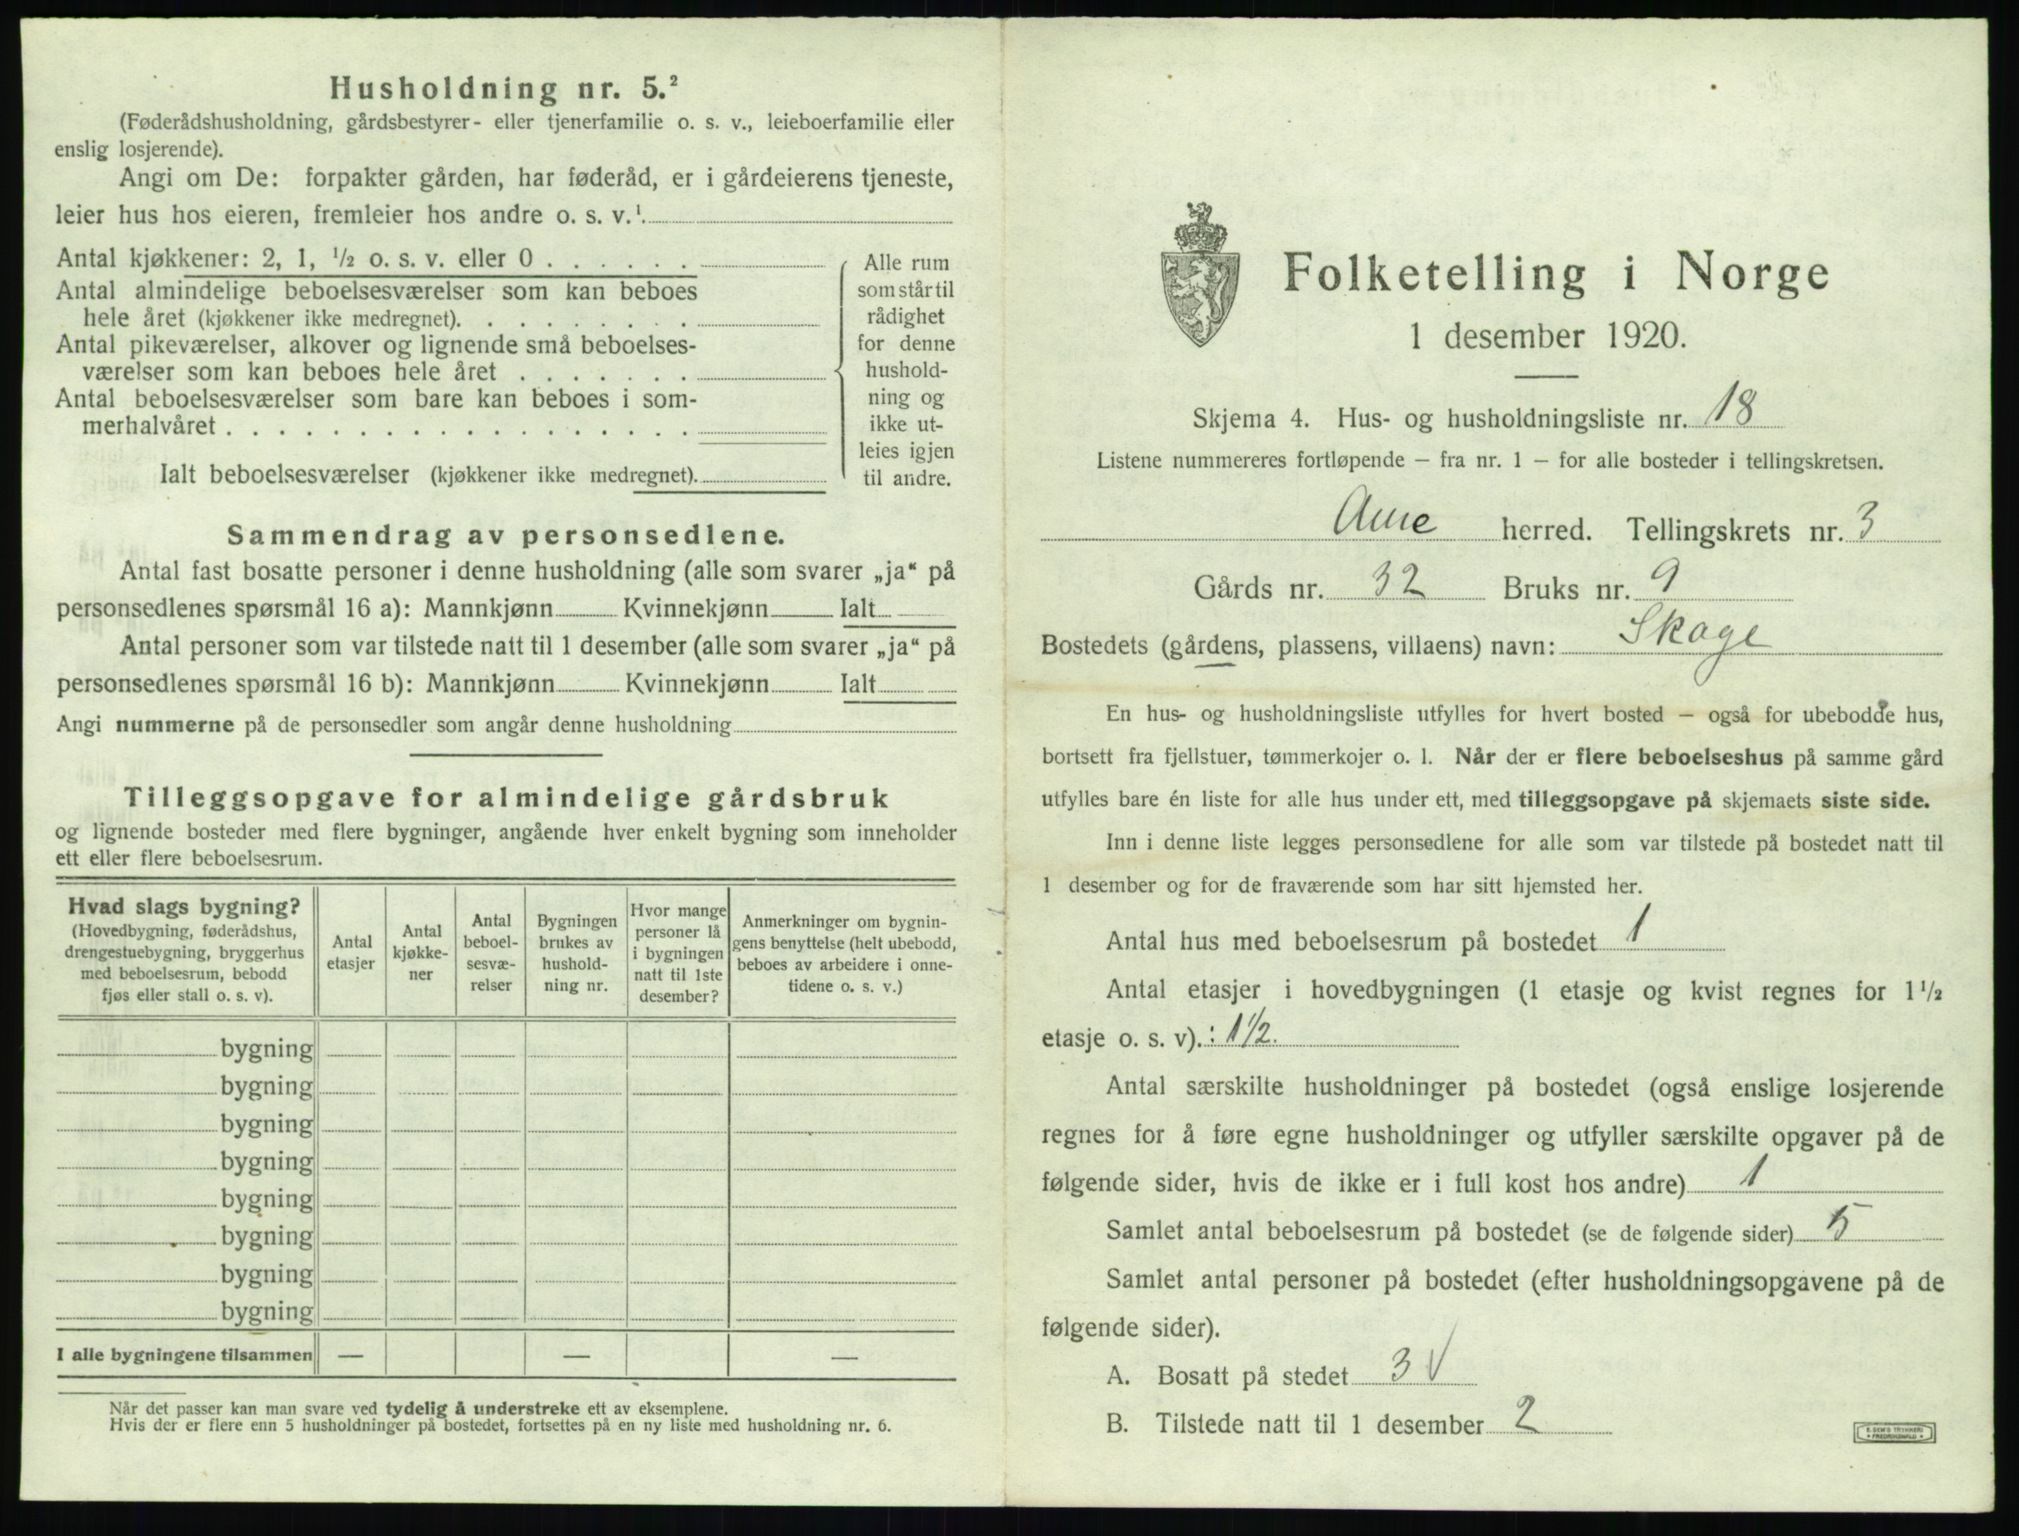 Husholdning nr. 5.²
(Føderådshusholdning, gårdsbestyrer- eller tjenerfamilie o. s. v., leieboerfamilie eller
enslig losjerende).
Angi om De: forpakter gården, har føderåd, er i gårdeierens tjeneste,
leier hus hos eieren, fremleier hos andre o. s. v.¹
Antal kjøkkener: 2, 1, ½ o. s. v. eller 0 . . . . . .
Antal almindelige beboelsesværelser som kan beboes
hele året (kjøkkener ikke medregnet). . . . . . . . .
Antal pikeværelser, alkover og lignende små beboelses-
værelser som kan beboes hele året . . . . . . .
Antal beboelsesværelser som bare kan beboes i som-
merhalvåret . . . . . . . . . . . . . . . . . .
Ialt beboelsesværelser (kjøkkener ikke medregnet).
Alle rum
som står til
rådighet
for denne
hushold-
ning og
ikke ut-
leies igjen
til andre.
Sammendrag av personsedlene.
Antal fast bosatte personer i denne husholdning (alle som svarer „ja“ på
personsedlenes spørsmål 16 a): Mannkjønn Kvinnekjønn Ialt
Antal personer som var tilstede natt til 1 desember (alle som svarer „ja“ på
personsedlenes spørsmål 16 b): Mannkjønn Kvinnekjønn Ialt
Angi nummerne på de personsedler som angår denne husholdning
Tilleggsopgave for almindelige gårdsbruk
og lignende bosteder med flere bygninger, angående hver enkelt bygning som inneholder
ett eller flere beboelsesrum.
Hvad slags bygning?
(Hovedbygning, føderådshus,
drengestuebygning, bryggerhus
med beboelsesrum, bebodd
fjøs eller stall o. s. v).
Antal
etasjer
Antal
kjøkke-
ner
Antal
beboel-
sesvæ-
relser
Bygningen
brukes av
hushold-
ning nr.
Hvor mange
personer lå
i bygningen
natt til 1ste
desember?
Anmerkninger om bygnin-
gens benyttelse (helt ubebodd,
beboes av arbeidere i onne-
tidene o. s. v.)
bygning
bygning
bygning
bygning
bygning
bygning
bygning
bygning
I alle bygningene tilsammen — — —
Når det passer kan man svare ved tydelig å understreke ett av eksemplene.
Hvis der er flere enn 5 husholdninger på bostedet, fortsettes på en ny liste med husholdning nr. 6.
Folketelling i Norge
1 desember 1920.
Skjema 4. Hus- og husholdningsliste nr. 18
Listene nummereres fortløpende — fra nr. 1 — for alle bosteder i tellingskretsen.
Aure herred. Tellingskrets nr. 3
Gårds nr. 32 Bruks nr. 9
Bostedets (gårdens, plassens, villaens) navn: Skage
En hus- og husholdningsliste utfylles for hvert bosted — også for ubebodde hus,
bortsett fra fjellstuer, tømmerkojer o. l. Når der er flere beboelseshus på samme gård
utfylles bare én liste for alle hus under ett, med tilleggsopgave på skjemaets siste side.
Inn i denne liste legges personsedlene for alle som var tilstede på bostedet natt til
1 desember og for de fraværende som har sitt hjemsted her.
Antal hus med beboelsesrum på bostedet 1
Antal etasjer i hovedbygningen (1 etasje og kvist regnes for 1½
etasje o. s. v).: 1½.
Antal særskilte husholdninger på bostedet (også enslige losjerende
regnes for å føre egne husholdninger og utfyller særskilte opgaver på de
følgende sider, hvis de ikke er i full kost hos andre) 1
Samlet antal beboelsesrum på bostedet (se de følgende sider) 5
Samlet antal personer på bostedet (efter husholdningsopgavene på de
følgende sider).
A. Bosatt på stedet 3 V
B. Tilstede natt til 1 desember 2